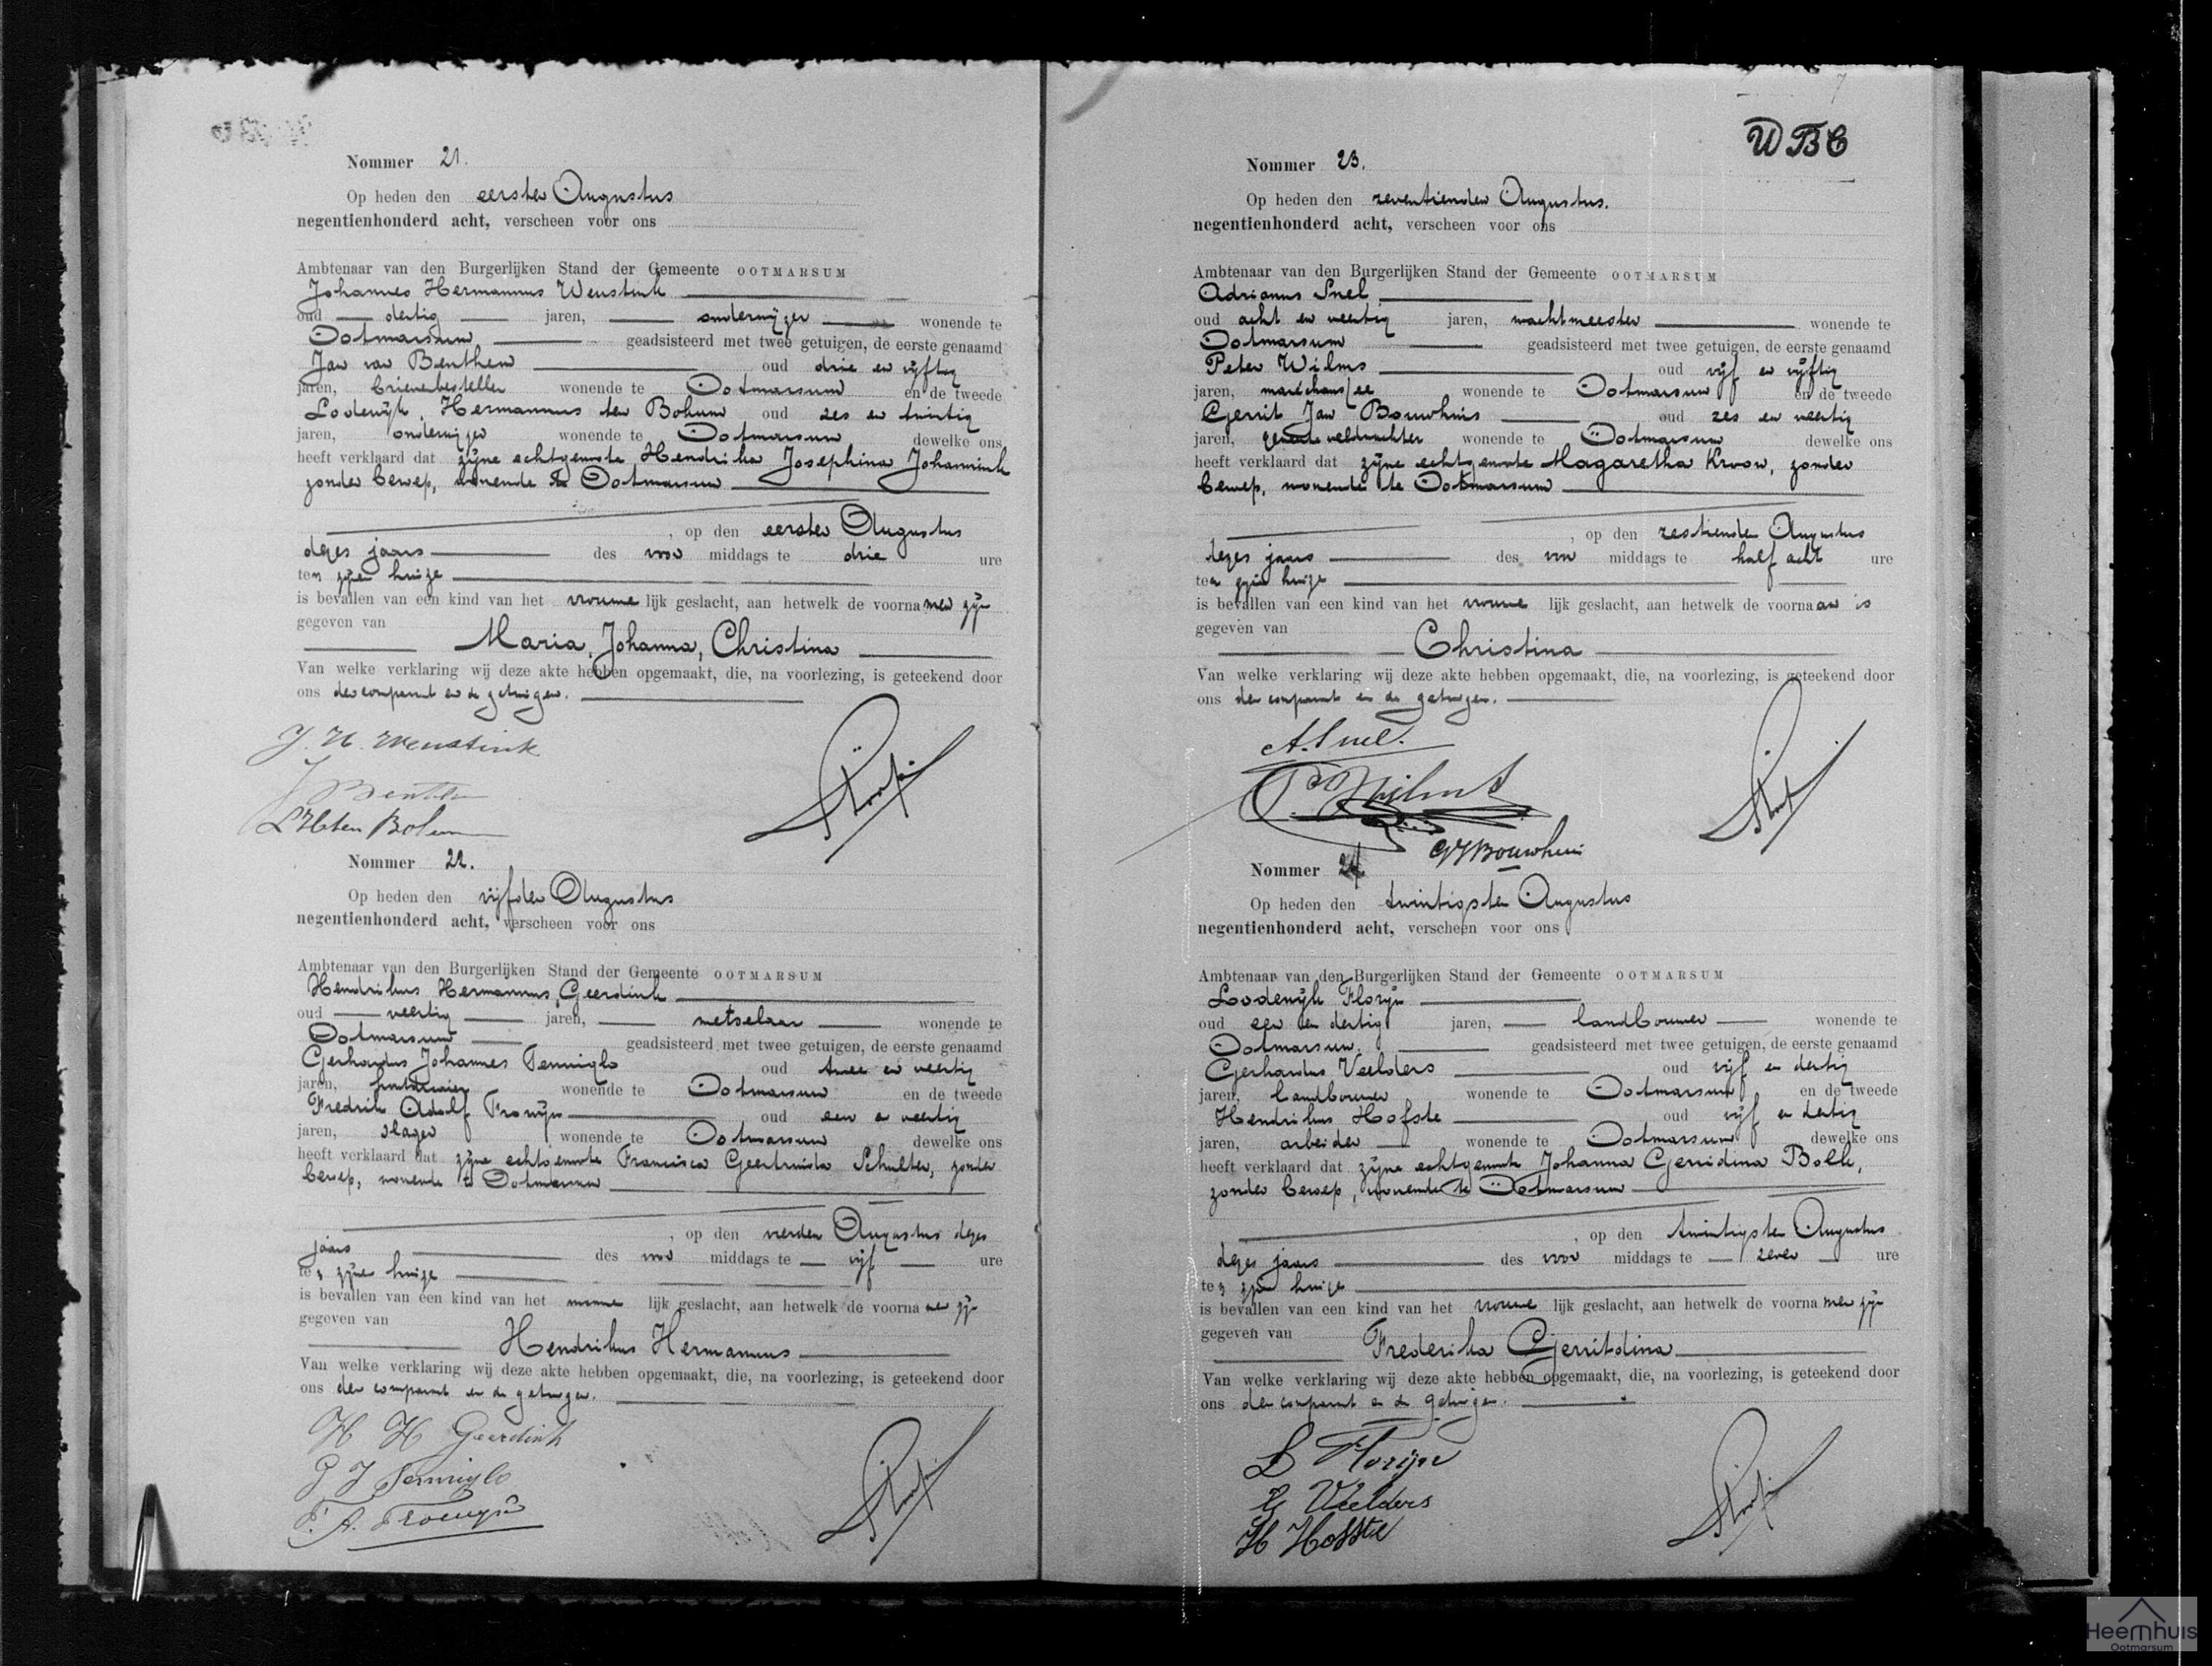 Nommer 21.
Op heden den eersten Augustus
negentienhonderd acht, verscheen voor ons
Ambtenaar van den Burgerlijken Stand der Gemeente OOTMARSUM
Johannes Hermannus Weustink
oud dertig jaren, onderwijzer wonende te
Ootmarsum geadsisteerd met twee getuigen, de eerste genaamd
Jan van Benthem oud drie en vijftig
jaren, brievenbesteller wonende te Ootmarsum en de tweede
Lodewijk, Hermannus ten Bohum oud zes en twintig
jaren, onderwijzer wonende te Ootmarsum dewelke ons
heeft verklaard dat zijne echtgenoote Hendrika Josephina Johannink
zonder beroep, wonende te Ootmarsum
, op den eersten Augustus
dezes jaars des voor middags te drie ure
ten zijnen huize
is bevallen van een kind van het vrouwe lijk geslacht, aan hetwelk de voorna men zijn
gegeven van
Maria, Johanna, Christina
Van welke verklaring wij deze akte hebben opgemaakt, die, na voorlezing, is geteekend door
ons den comparant en de getuigen.
J. H. Weustink
J Benthem
L H ten Bohum
Nommer 22.
Op heden den vijfden Augustus
negentienhonderd acht, verscheen voor ons
Ambtenaar van den Burgerlijken Stand der Gemeente OOTMARSUM
Hendrikus Hermannus Geerdink
oud veertig jaren, metselaar wonende te
Ootmarsum geadsisteerd met twee getuigen, de eerste genaamd
Gerhardus Johannes Tenniglo oud twee en veertig
jaren, wonende te Ootmarsum en de tweede
Fredrik Adolf Frowijn oud een en veertig
jaren, slager wonende te Ootmarsum dewelke ons
heeft verklaard dat zijne echtgenoote Francisca Geertruida Schulten, zonder
beroep, wonende te Ootmarsum
, op den vierden Augustus dezes
jaars des voor middags te vijf ure
ten zijnen huize
is bevallen van een kind van het manne lijk geslacht, aan hetwelk de voorna men zijn
gegeven van
Hendrikus Hermannus
Van welke verklaring wij deze akte hebben opgemaakt, die, na voorlezing, is geteekend door
ons den comparant en de getuigen.
H H Geerdink
G J Tenniglo
F. A. Frowijn
WBC
Nommer 23.
Op heden den zeventienden Augustus.
negentienhonderd acht, verscheen voor ons
Ambtenaar van den Burgerlijken Stand der Gemeente OOTMARSUM
Adrianus Snel
oud acht en veertig jaren, wachtmeester wonende te
Ootmarsum geadsisteerd met twee getuigen, de eerste genaamd
Peter Wilms oud vijf en vijftig
jaren, maréchaussee wonende te Ootmarsum en de tweede
Gerrit Jan Bouwhuis oud zes en veertig
jaren, gemeenteveldwachter wonende te Ootmarsum dewelke ons
heeft verklaard dat zijne echtgenoote Magaretha Kroon, zonder
beroep, wonende te Ootmarsum
, op den zestienden Augustus
dezes jaars des voor middags te half acht ure
ten zijnen huize
is bevallen van een kind van het vrouwe lijk geslacht, aan hetwelk de voorna am is
gegeven van
Christina
Van welke verklaring wij deze akte hebben opgemaakt, die, na voorlezing, is geteekend door
ons den comparant en de getuigen.
A. Snel.
P. Wilms
GJ Bouwhuis
Nommer 24.
Op heden den twintigsten Augustus
negentienhonderd acht, verscheen voor ons
Ambtenaar van den Burgerlijken Stand der Gemeente OOTMARSUM
Lodewijk Florijn
oud een en dertig jaren, landbouwer wonende te
Ootmarsum. geadsisteerd met twee getuigen, de eerste genaamd
Gerhardus Veelders oud vijf en dertig
jaren, landbouwer wonende te Ootmarsum en de tweede
Hendrikus Hofste oud vijf en dertig
jaren, arbeider wonende te Ootmarsum dewelke ons
heeft verklaard dat zijne echtgenoote Johanna Gerridina Bolk,
zonder beroep, wonende te Ootmarsum
, op den twintigsten Augustus
dezes jaars des voor middags te zeven ure
ten zijnen huize
is bevallen van een kind van het vrouwe lijk geslacht, aan hetwelk de voorna men zijn
gegeven van
Frederika Gerritdina
Van welke verklaring wij deze akte hebben opgemaakt, die, na voorlezing, is geteekend door
ons den comparant en de getuigen.
L Florijn
G Veelders
H Hofste
Heemhuis
Ootmarsum